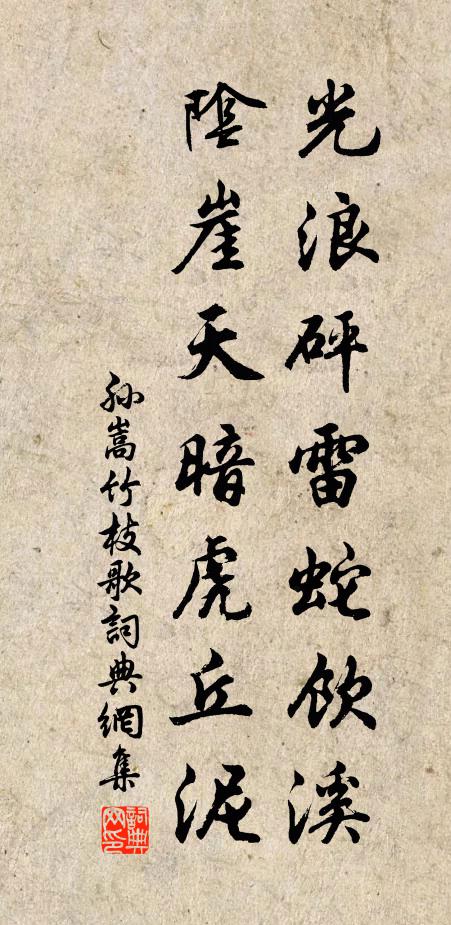 光浪砰雷蛇饮溪
陰崖天暗虎丘泥
孙嵩竹枝歌詞典網集
詞典
网印